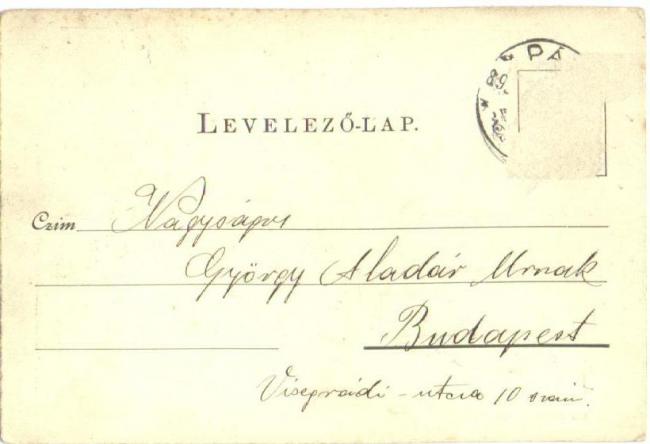 PÁ
89
LEVELEZŐ-LAP.
Czim Nagyságos
György Aladár Urnak
Budapest
Visegrádi-utcza 10 szám.